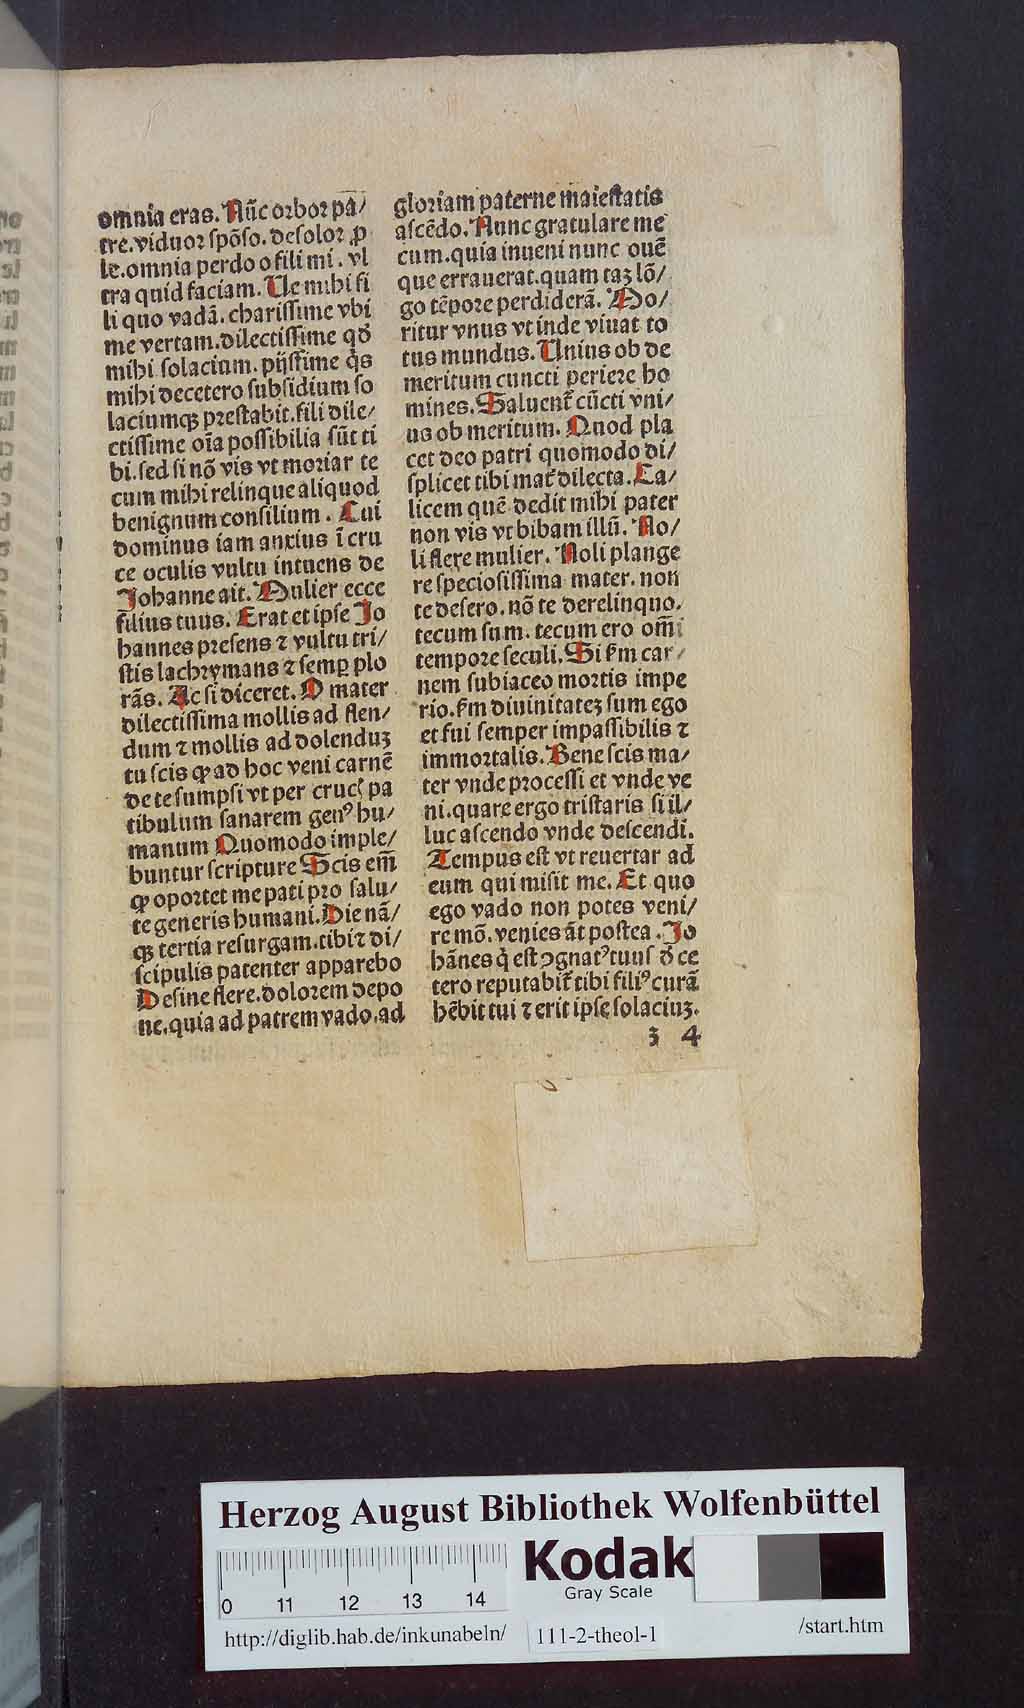 omnia eras. Nūc orbor pa/
tre. viduor spōso. desolor ꝓ
le. omnia perdo o fili mi. vl
tra quid faciam. Ue mihi fi
li quo vadā. charissime vbi
me vertam. dilectissime qď
mihi solacium. pijssime q̇s
mihi decetero subsidium so
laciumqꝫ prestabit. fili dile/
ctissime oīa possibilia sūt ti
bi. sed si nō vis vt moriar te
cum mihi relinque aliquod
benignum consilium. Cui
dominus iam anxius ī cru
ce oculis vultu intuens de
Johanne ait. Mulier ecce
filius tuus. Erat et ipse Jo
hannes presens ⁊ vultu tri/
stis lachrymans ⁊ semꝑ plo
rās. Ac si diceret. O mater
dilectissima mollis ad flen/
dum ⁊ mollis ad dolenduꝫ
tu scis ꝙ ad hoc veni carnē
de te sumpsi vt per cruc̄ pa
tibulum sanarem genꝰ hu/
manum Quomodo imple/
buntur scripture Scis em̄
ꝙ oportet me pati pro salu/
te generis humani. Die nā/
qꝫ tertia resurgam. tibi ⁊ di/
scipulis patenter apparebo
Desine flere. dolorem depo
ne. quia ad patrem vado. ad
gloriam paterne maiestatis
ascēdo. Nunc gratulare me
cum. quia inueni nunc ouē
que errauerat. quam taꝫ lō/
go tēpore perdiderā. Mo/
ritur vnus vt inde viuat to
tus mundus. Unius ob de
meritum cuncti periere ho
mines. Saluent᷑ cūcti vni/
us ob meritum. Quod pla
cet deo patri quomodo di/
splicet tibi mat᷑ dilecta. Ca/
licem quē dedit mihi pater
non vis vt bibam illū. No/
li flere mulier. Noli plange
re speciosissima mater. non
te desero. nō te derelinquo.
tecum sum. tecum ero om̄i
tempore seculi. Si fm̄ car/
nem subiaceo mortis impe
rio. fm̄ diuinitateꝫ sum ego
et fui semper impassibilis ⁊
immortalis. Bene scis ma/
ter vnde processi et vnde ve
ni. quare ergo tristaris si il/
luc ascendo vnde descendi.
Tempus est vt reuertar ad
eum qui misit me. Et quo
ego vado non potes veni/
re mō. venies āt postea. Jo
hānes q̇ est ↄgnatꝰ tuus ď ce
tero reputabit᷑ tibi filiꝰ curā
hēbit tui ⁊ erit ipse solaciuꝫ.
ꝫ 4
Herzog August Bibliothek Wolfenbüttel
Kodak
Gray Scale
0 11 12 13 14
http://diglib.hab.de/inkunabeln/ 111-2-theol-1 /start.htm